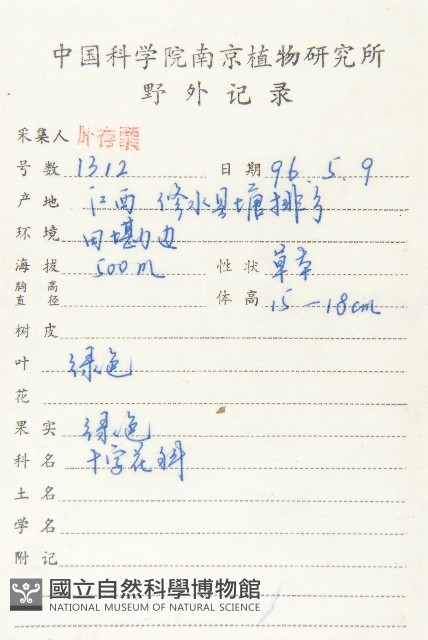 中国科学院南京植物研究所
野外记录
采集人 叶存粟
号数 1312 日期 96.5.9
产地 江西 修水县塘排乡
环境 田堪边
海拔 500m 性状 草本
胸高直径 体高 15-18cm
树皮
叶 绿色
花
果实 绿色
科名 十字花科
土名
学名
附记
國立自然科學博物館
NATIONAL MUSEUM OF NATURAL SCIENCE